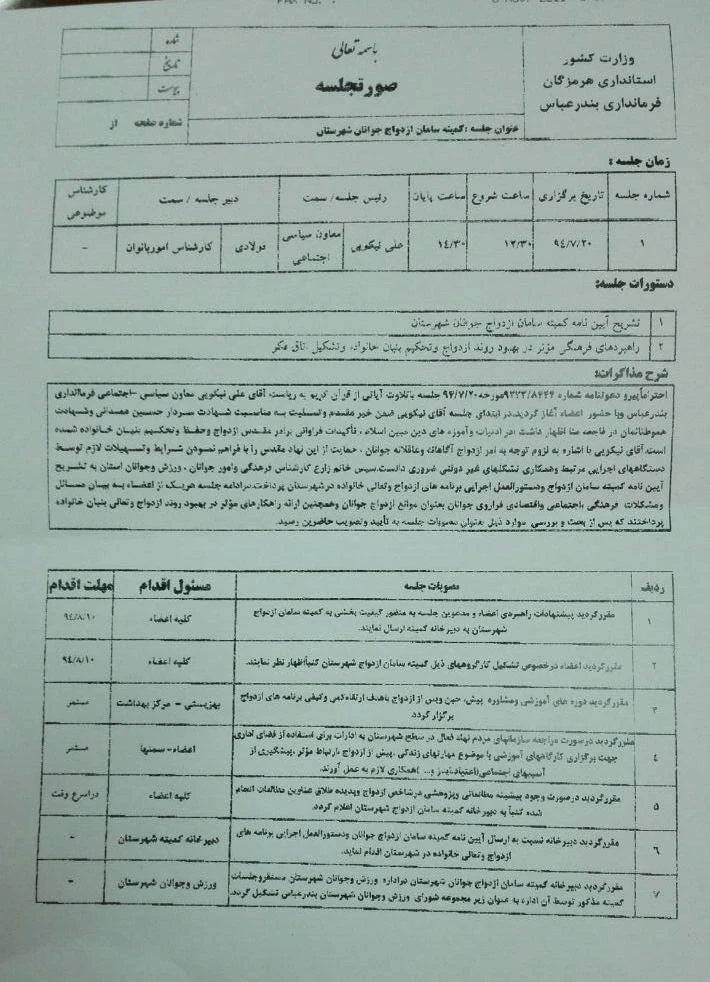 باسمه تعالی
وزارت کشور
استانداری هرمزگان
فرمانداری بندرعباس
صورتجلسه
شماره
تاریخ
پیوست
شماره صفحه از
عنوان جلسه : کمیته سامان ازدواج جوانان شهرستان
زمان جلسه :
شماره جلسه تاریخ برگزاری ساعت شروع ساعت پایان رئیس جلسه/ سمت دبیر جلسه / سمت کارشناس موضوعی
۱ ۹۴/۷/۲۰ ۱۲/۳۰ ۱۴/۳۰ علی نیکویی معاون سیاسی اجتماعی فولادی کارشناس اموربانوان -
دستورات جلسه:
۱ تشریح آیین نامه کمیته سامان ازدواج جوانان شهرستان
۲ راهبردهای فرهنگی مؤثر در بهبود روند ازدواج وتحکیم بنیان خانواده وتشکیل اتاق فکر
شرح مذاکرات:
احتراماًپیرو دعوتنامه شماره ۹۳۳۳/۸۴۴۴مورخه ۹۴/۷/۲۰ جلسه باتلاوت آیاتی از قرآن کریم به ریاست آقای علی نیکویی معاون سیاسی -اجتماعی فرمانداری
بندرعباس وبا حضور اعضاء آغاز گردید.در ابتدای جلسه آقای نیکویی ضمن خیر مقدم وتسلیت به مناسبت شهادت سردار حسین همدانی وشهادت
هموطنانمان در فاجعه منا اظهار داشت :در ادبیات وآموزه های دین مبین اسلام ، تأکیدات فراوانی برامر مقدس ازدواج وحفظ وتحکیم بنیان خانواده شده
است.آقای نیکویی با اشاره به لزوم توجه به امر ازدواج آگاهانه وعاقلانه جوانان ، حمایت از این نهاد مقدس را با فراهم نمودن شرایط وتسهیلات لازم توسط
دستگاههای اجرایی مرتبط وهمکاری تشکلهای غیر دولتی ضروری دانست.سپس خانم زارع کارشناس فرهنگی وامور جوانان ، ورزش وجوانان استان به تشریح
آیین نامه کمیته سامان ازدواج ودستورالعمل اجرایی برنامه های ازدواج وتعالی خانواده درشهرستان پرداخت.درادامه جلسه هریک از اعضاء به بیان مسائل
ومشکلات فرهنگی ،اجتماعی واقتصادی فراروی جوانان بعنوان موانع ازدواج جوانان وهمچنین ارائه راهکارهای مؤثر در بهبود روند ازدواج وتعالی بنیان خانواده
پرداختند که پس از بحث و بررسی موارد ذیل بعنوان مصوبات جلسه به تأیید وتصویب حاضرین رسید.
ردیف مصوبات جلسه مسئول اقدام مهلت اقدام
۱ مقررگردید پیشنهادات راهبردی اعضاء و مدعوین جلسه به منظور کیفیت بخشی به کمیته سامان ازدواج
شهرستان به دبیر خانه کمیته ارسال نمایند. کلیه اعضاء ۹۴/۸/۱۰
۲ مقررگردید اعضاء درخصوص تشکیل کارگروههای ذیل کمیته سامان ازدواج شهرستان کتباًاظهار نظر نمایند. کلیه اعضاء ۹۴/۸/۱۰
۳ مقررگردید دوره های آموزشی ومشاوره پیش، حین وپس از ازدواج باهدف ارتقاءکمی وکیفی برنامه های ازدواج
برگزار گردد. بهزیستی – مرکز بهداشت مستمر
۴ مقررگردید درصورت مراجعه سازمانهای مردم نهاد فعال در سطح شهرستان به ادارات برای استفاده از فضای اداری
جهت برگزاری کارگاههای آموزشی با موضوع مهارتهای زندگی ،پیش از ازدواج ،ارتباط مؤثر ،پیشگیری از
آسیبهای اجتماعی(اعتیاد،ایدز و... )همکاری لازم به عمل آورند. اعضاء-سمنها مستمر
۵ مقررگردید درصورت وجود پیشینه مطالعاتی وپژوهشی درشاخص ازدواج وپدیده طلاق عناوین مطالعات انجام
شده کتباً به دبیر خانه کمیته سامان ازدواج شهرستان اعلام گردد. کلیه اعضاء دراسرع وقت
۶ مقررگردید دبیر خانه نسبت به ارسال آیین نامه کمیته سامان ازدواج جوانان ودستورالعمل اجرایی برنامه های
ازدواج وتعالی خانواده در شهرستان اقدام نماید. دبیر خانه کمیته شهرستان -
۷ مقررگردید دبیرخانه کمیته سامان ازدواج جوانان شهرستان دراداره ورزش وجوانان شهرستان مستقروجلسات
کمیته مذکور توسط آن اداره به عنوان زیر مجموعه شورای ورزش وجوانان شهرستان بندرعباس تشکیل گردد. ورزش وجوانان شهرستان -